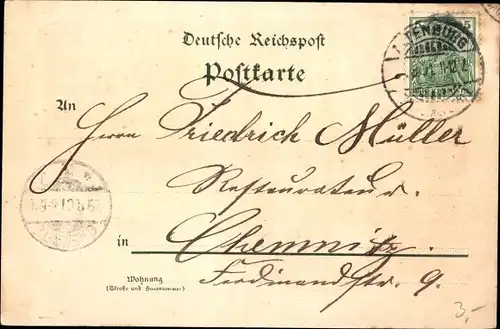 5
ALTENBURG
Deutsche Reichspost
Postkarte
An
Herrn Friedrich Müller
Restaurateur.
in Chemnitz.
Wohnung
(Straße und Hausnummer)
Ferdinandstr. 9.
3.-